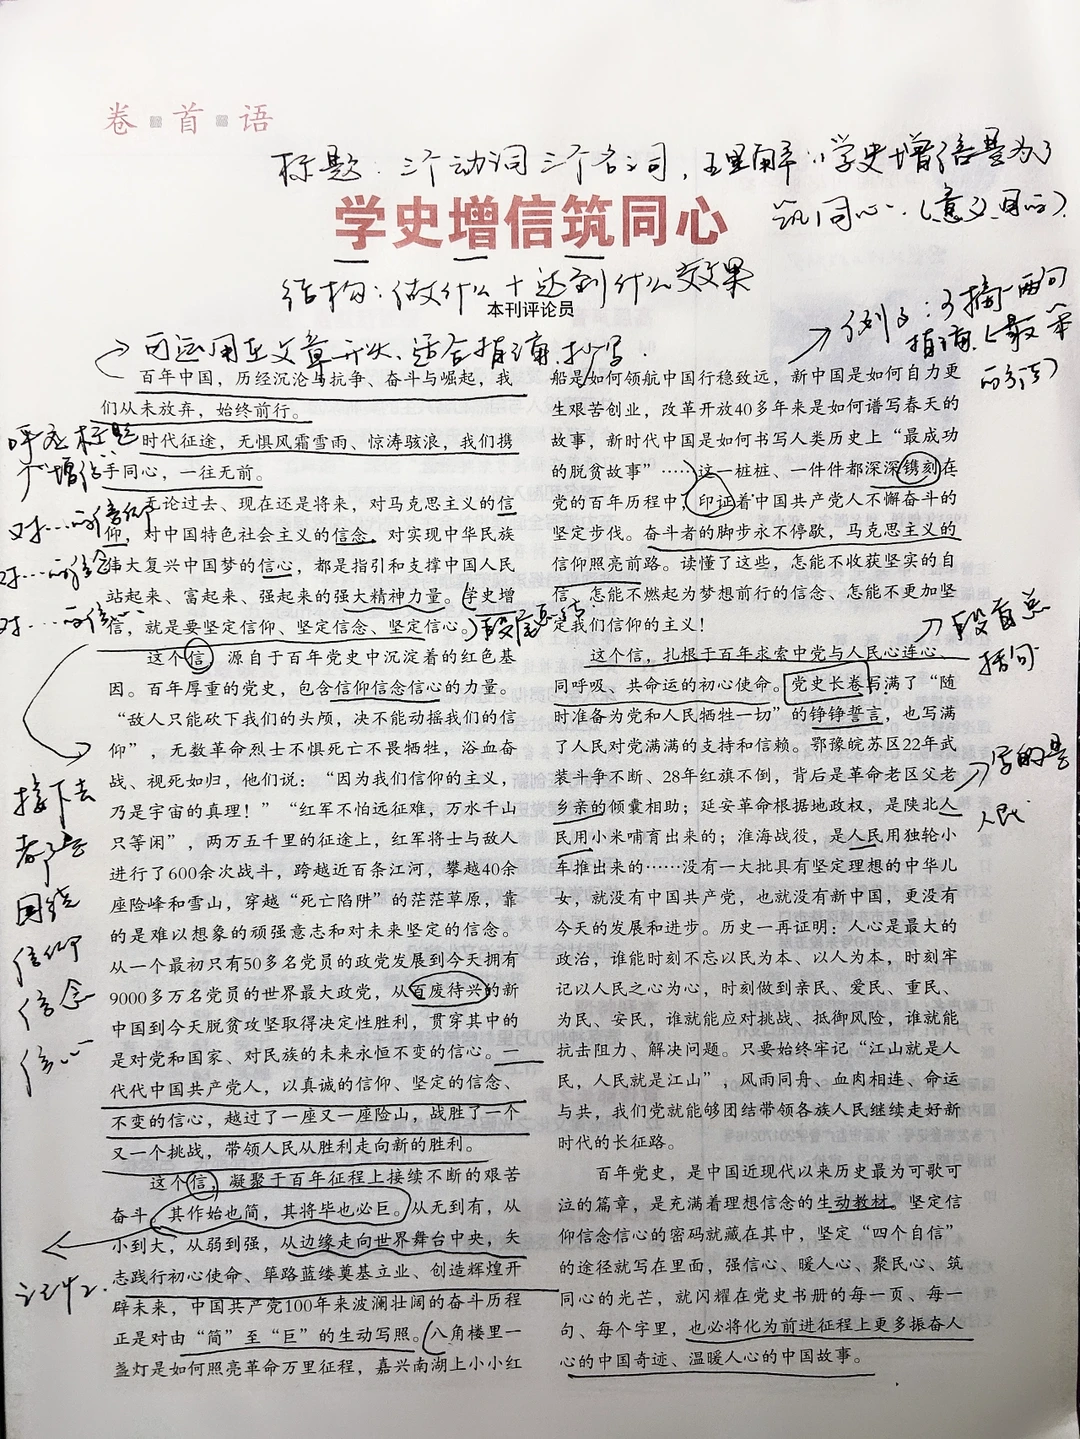 卷首语
标题：三个动词三个名词，理解：学史增信是为了
筑同心、(意义、目的)
学史增信筑同心
结构：做什么+达到什么效果
本刊评论员
可运用在文章开头、适合摘讲、抄写
百年中国，历经沉沦与抗争、奋斗与崛起，我
们从未放弃，始终前行。
呼应标题
"增信"
时代征途，无惧风霜雪雨、惊涛骇浪，我们携
手同心，一往无前。
无论过去、现在还是将来，对马克思主义的信
仰，对中国特色社会主义的信念，对实现中华民族
伟大复兴中国梦的信心，都是指引和支撑中国人民
站起来、富起来、强起来的强大精神力量。学史增
信，就是要坚定信仰、坚定信念、坚定信心。
对…的信仰
对…的信念
对…的信心
段尾总结
这个信，源自于百年党史中沉淀着的红色基
因。百年厚重的党史，包含信仰信念信心的力量。
“敌人只能砍下我们的头颅，决不能动摇我们的信
仰”，无数革命烈士不惧死亡不畏牺牲，浴血奋
战、视死如归，他们说：“因为我们信仰的主义，
乃是宇宙的真理！”“红军不怕远征难，万水千山
只等闲”，两万五千里的征途上，红军将士与敌人
进行了600余次战斗，跨越近百条江河，攀越40余
座险峰和雪山，穿越“死亡陷阱”的茫茫草原，靠
的是难以想象的顽强意志和对未来坚定的信念。
从一个最初只有50多名党员的政党发展到今天拥有
9000多万名党员的世界最大政党，从百废待兴的新
中国到今天脱贫攻坚取得决定性胜利，贯穿其中的
是对党和国家、对民族的未来永恒不变的信心。一
代代中国共产党人，以真诚的信仰、坚定的信念、
不变的信心，越过了一座又一座险山，战胜了一个
又一个挑战，带领人民从胜利走向新的胜利。
接下去
都是
围绕
信仰
信念
信心
这个信，凝聚于百年征程上接续不断的艰苦
奋斗。其作始也简，其将毕也必巨。从无到有，从
小到大，从弱到强，从边缘走向世界舞台中央，矢
志践行初心使命、筚路蓝缕奠基立业、创造辉煌开
辟未来，中国共产党100年来波澜壮阔的奋斗历程
正是对由“简”至“巨”的生动写照。八角楼里一
盏灯是如何照亮革命万里征程，嘉兴南湖上小小红
例子：可摘一两句
船是如何领航中国行稳致远，新中国是如何自力更
生艰苦创业，改革开放40多年来是如何谱写春天的
故事，新时代中国是如何书写人类历史上“最成功
的脱贫故事”……这一桩桩、一件件都深深镌刻在
党的百年历程中，印证着中国共产党人不懈奋斗的
坚定步伐。奋斗者的脚步永不停歇，马克思主义的
信仰照亮前路。读懂了这些，怎能不收获坚实的自
信、怎能不燃起为梦想前行的信念、怎能不更加坚
定我们信仰的主义！
段首总
括句
这个信，扎根于百年求索中党与人民心连心、
同呼吸、共命运的初心使命。党史长卷写满了“随
时准备为党和人民牺牲一切”的铮铮誓言，也写满
了人民对党满满的支持和信赖。鄂豫皖苏区22年武
装斗争不断、28年红旗不倒，背后是革命老区父老
乡亲的倾囊相助；延安革命根据地政权，是陕北人
民用小米哺育出来的；淮海战役，是人民用独轮小
车推出来的……没有一大批具有坚定理想的中华儿
女，就没有中国共产党，也就没有新中国，更没有
今天的发展和进步。历史一再证明：人心是最大的
政治，谁能时刻不忘以民为本、以人为本，时刻牢
记以人民之心为心，时刻做到亲民、爱民、重民、
为民、安民，谁就能应对挑战、抵御风险，谁就能
抗击阻力、解决问题。只要始终牢记“江山就是人
民，人民就是江山”，风雨同舟、血肉相连、命运
与共，我们党就能够团结带领各族人民继续走好新
时代的长征路。
写的是
人民
百年党史，是中国近现代以来历史最为可歌可
泣的篇章，是充满着理想信念的生动教材。坚定信
仰信念信心的密码就藏在其中，坚定“四个自信”
的途径就写在里面，强信心、暖人心、聚民心、筑
同心的光芒，就闪耀在党史书册的每一页、每一
句、每个字里，也必将化为前进征程上更多振奋人
心的中国奇迹、温暖人心的中国故事。